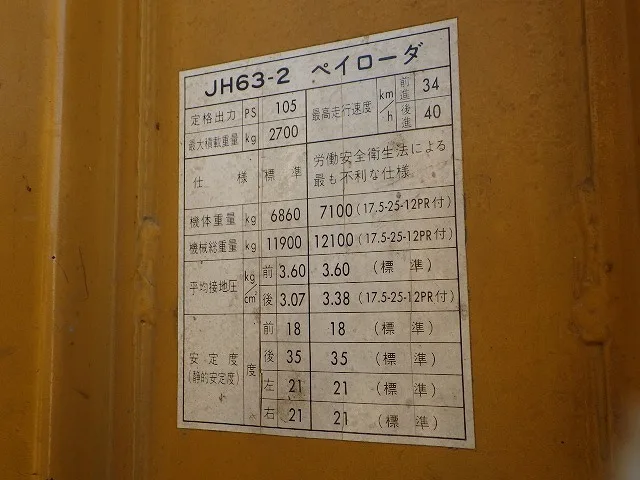 JH63-2 ペイローダ
定格出力 PS 105 最高走行速度 km/h 前進 34
最大積載重量 kg 2700 後進 40
仕様 標準 労働安全衛生法による
最も不利な仕様
機体重量 kg 6860 7100 (17.5-25-12PR付)
機械総重量 kg 11900 12100 (17.5-25-12PR付)
平均接地圧 kg/cm² 前 3.60 3.60 (標準)
後 3.07 3.38 (17.5-25-12PR付)
安定度 (静的安定度) 度 前 18 18 (標準)
後 35 35 (標準)
左 21 21 (標準)
右 21 21 (標準)